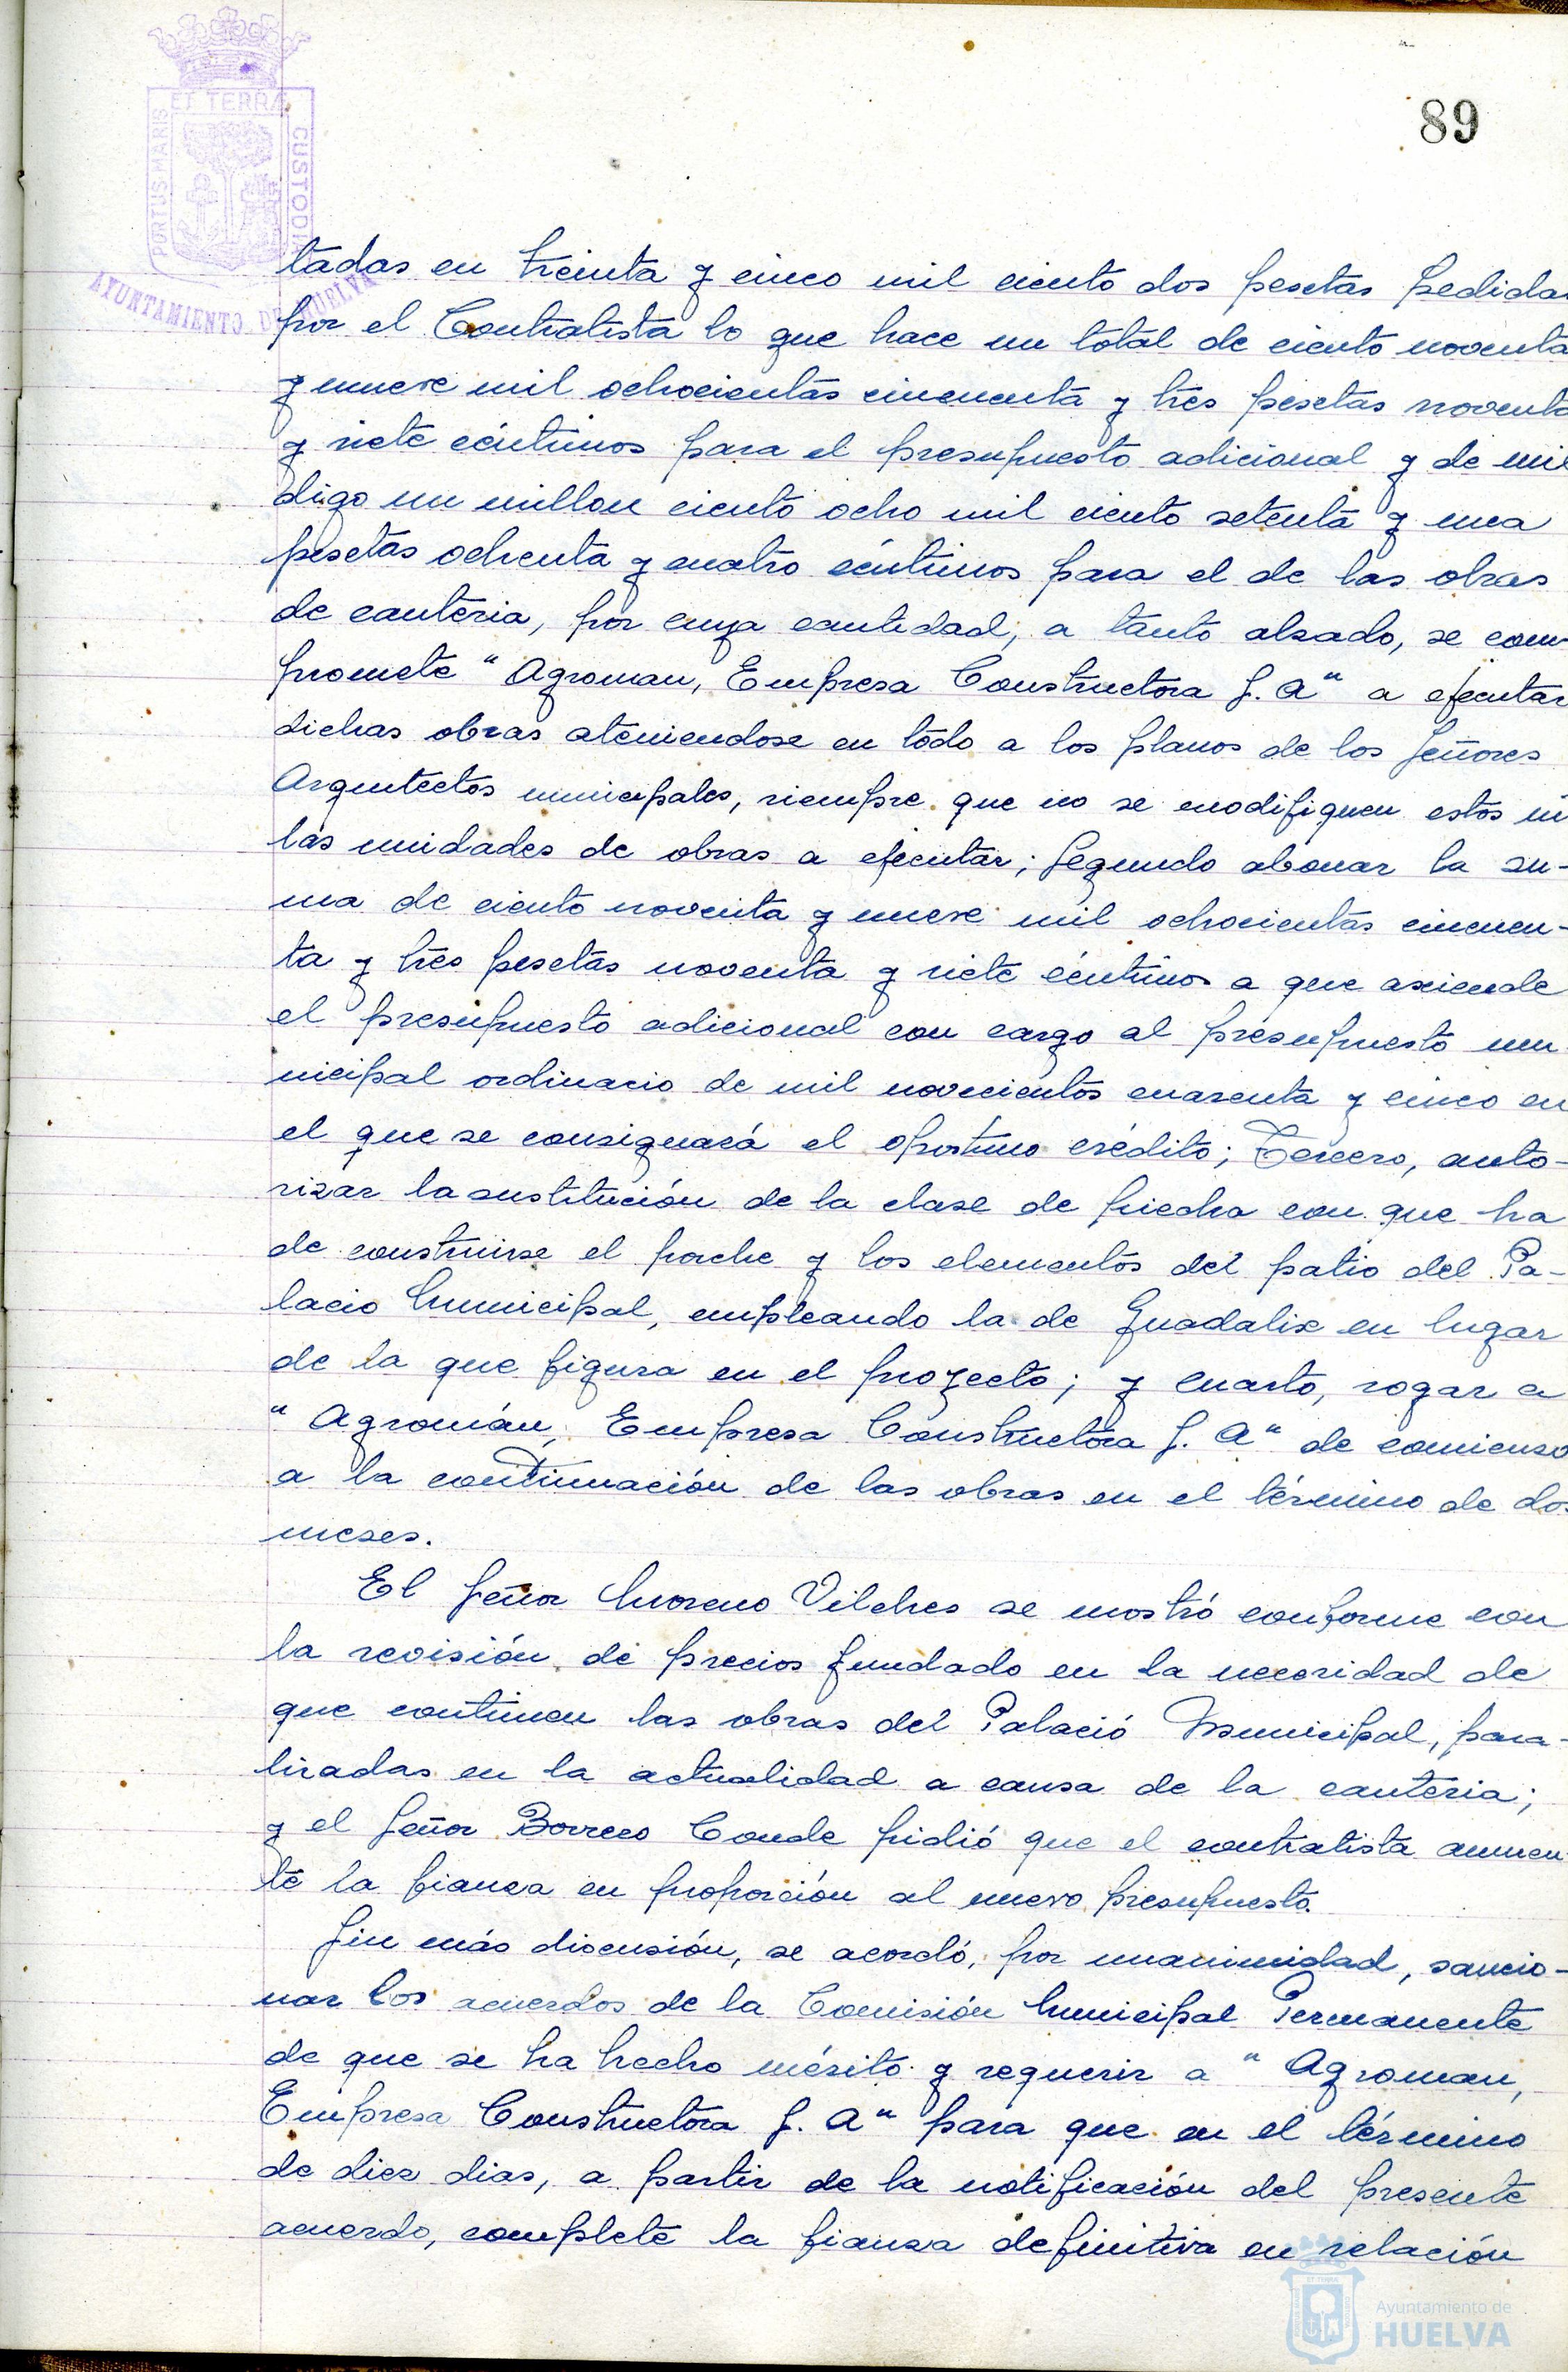 89
ET TERRÆ
PORTUS MARIS
CUSTODIA
AYUNTAMIENTO DE HUELVA
tadas en treinta y cinco mil ciento dos pesetas pedidas
por el Contratista lo que hace un total de ciento noventa
y nueve mil ochocientas cincuenta y tres pesetas noventa
y siete céntimos para el presupuesto adicional y de mil
digo un millon ciento ocho mil ciento setenta y una
pesetas ochenta y cuatro céntimos para el de las obras
de cantéria, por cuya cantidad, a tanto alzado, se com-
promete "Agroman, Empresa Constructora S. A" a ejecutar
dichas obras ateniendose en todo a los planos de los Señores
Arquitectos municipales, siempre que no se modifiquen estos ni
las unidades de obras a ejecutar; Segundo abonar la su-
ma de ciento noventa y nueve mil ochocientas cincuen-
ta y tres pesetas noventa y siete céntimos a que asciende
el presupuesto adicional con cargo al presupuesto mu
nicipal ordinario de mil novecientos cuarenta y cinco en
el que se consignará el oportuno crédito; Tercero, auto-
rizar la sustitución de la clase de piedra con que ha
de construirse el porche y los elementos del patio del Pa-
lacio Municipal, empleando la de Guadalix en lugar
de la que figura en el proyecto; y cuarto, rogar a
"Agromán, Empresa Constructora S. A" de comienzo
a la continuación de las obras en el término de dos
meses.
El Señor Moreno Vilches se mostró conforme con
la revisión de precios fundado en la necesidad de
que continuen las obras del Palació Municipal, para-
lizadas en la actualidad a causa de la cantéria;
y el Señor Borrero Conde pidió que el contratista aumen
te la fianza en proporción al nuevo presupuesto.
Sin más discusión, se acordó, por unanimidad, sancio-
nar los acuerdos de la Comisión Municipal Permanente
de que se ha hecho mérito y requerir a "Agroman,
Empresa Constructora S. A" para que en el término
de diez dias, a partir de la notificación del presente
acuerdo, complete la fianza definitiva en relación
Ayuntamiento de
HUELVA